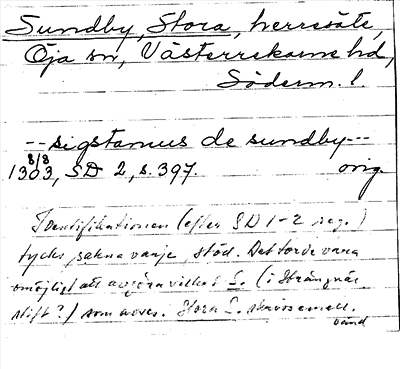 Sundby, Stora, herresäte,
Öja sn, Västerrekarne hd,
Söderm. l.
--sigstamus de sundby--
8/8
1303, SD 2, s. 397. orig.
Identifikationen (efter SD 1-2 reg.)
tycks sakna varje stöd. Det torde vara
omöjligt att avgöra vilket S. (i Strängnäs
stift?) som avses. Stora S. skrivs emell.